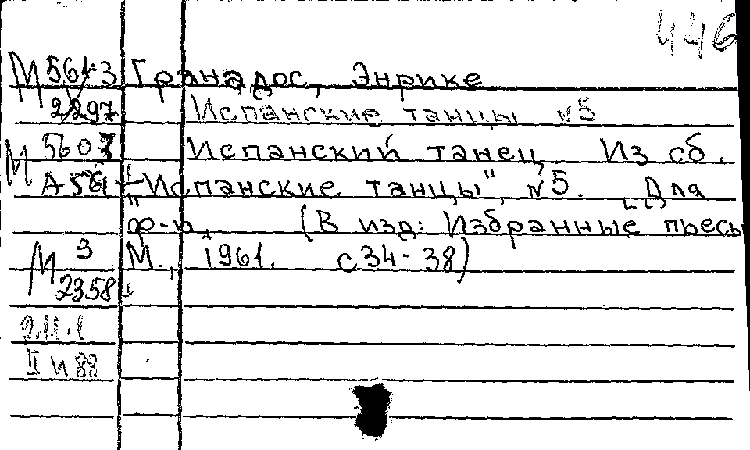 446
М 5613 Гранадос, Энрике
2297 Испанские танцы №5
М 5607 Испанский танец Из сб.
А561 "Испанские танцы", №5. Для
ф-п. (В изд: Избранные пьесы
М 3 М., 1961. с34-38)
2358
II и 88